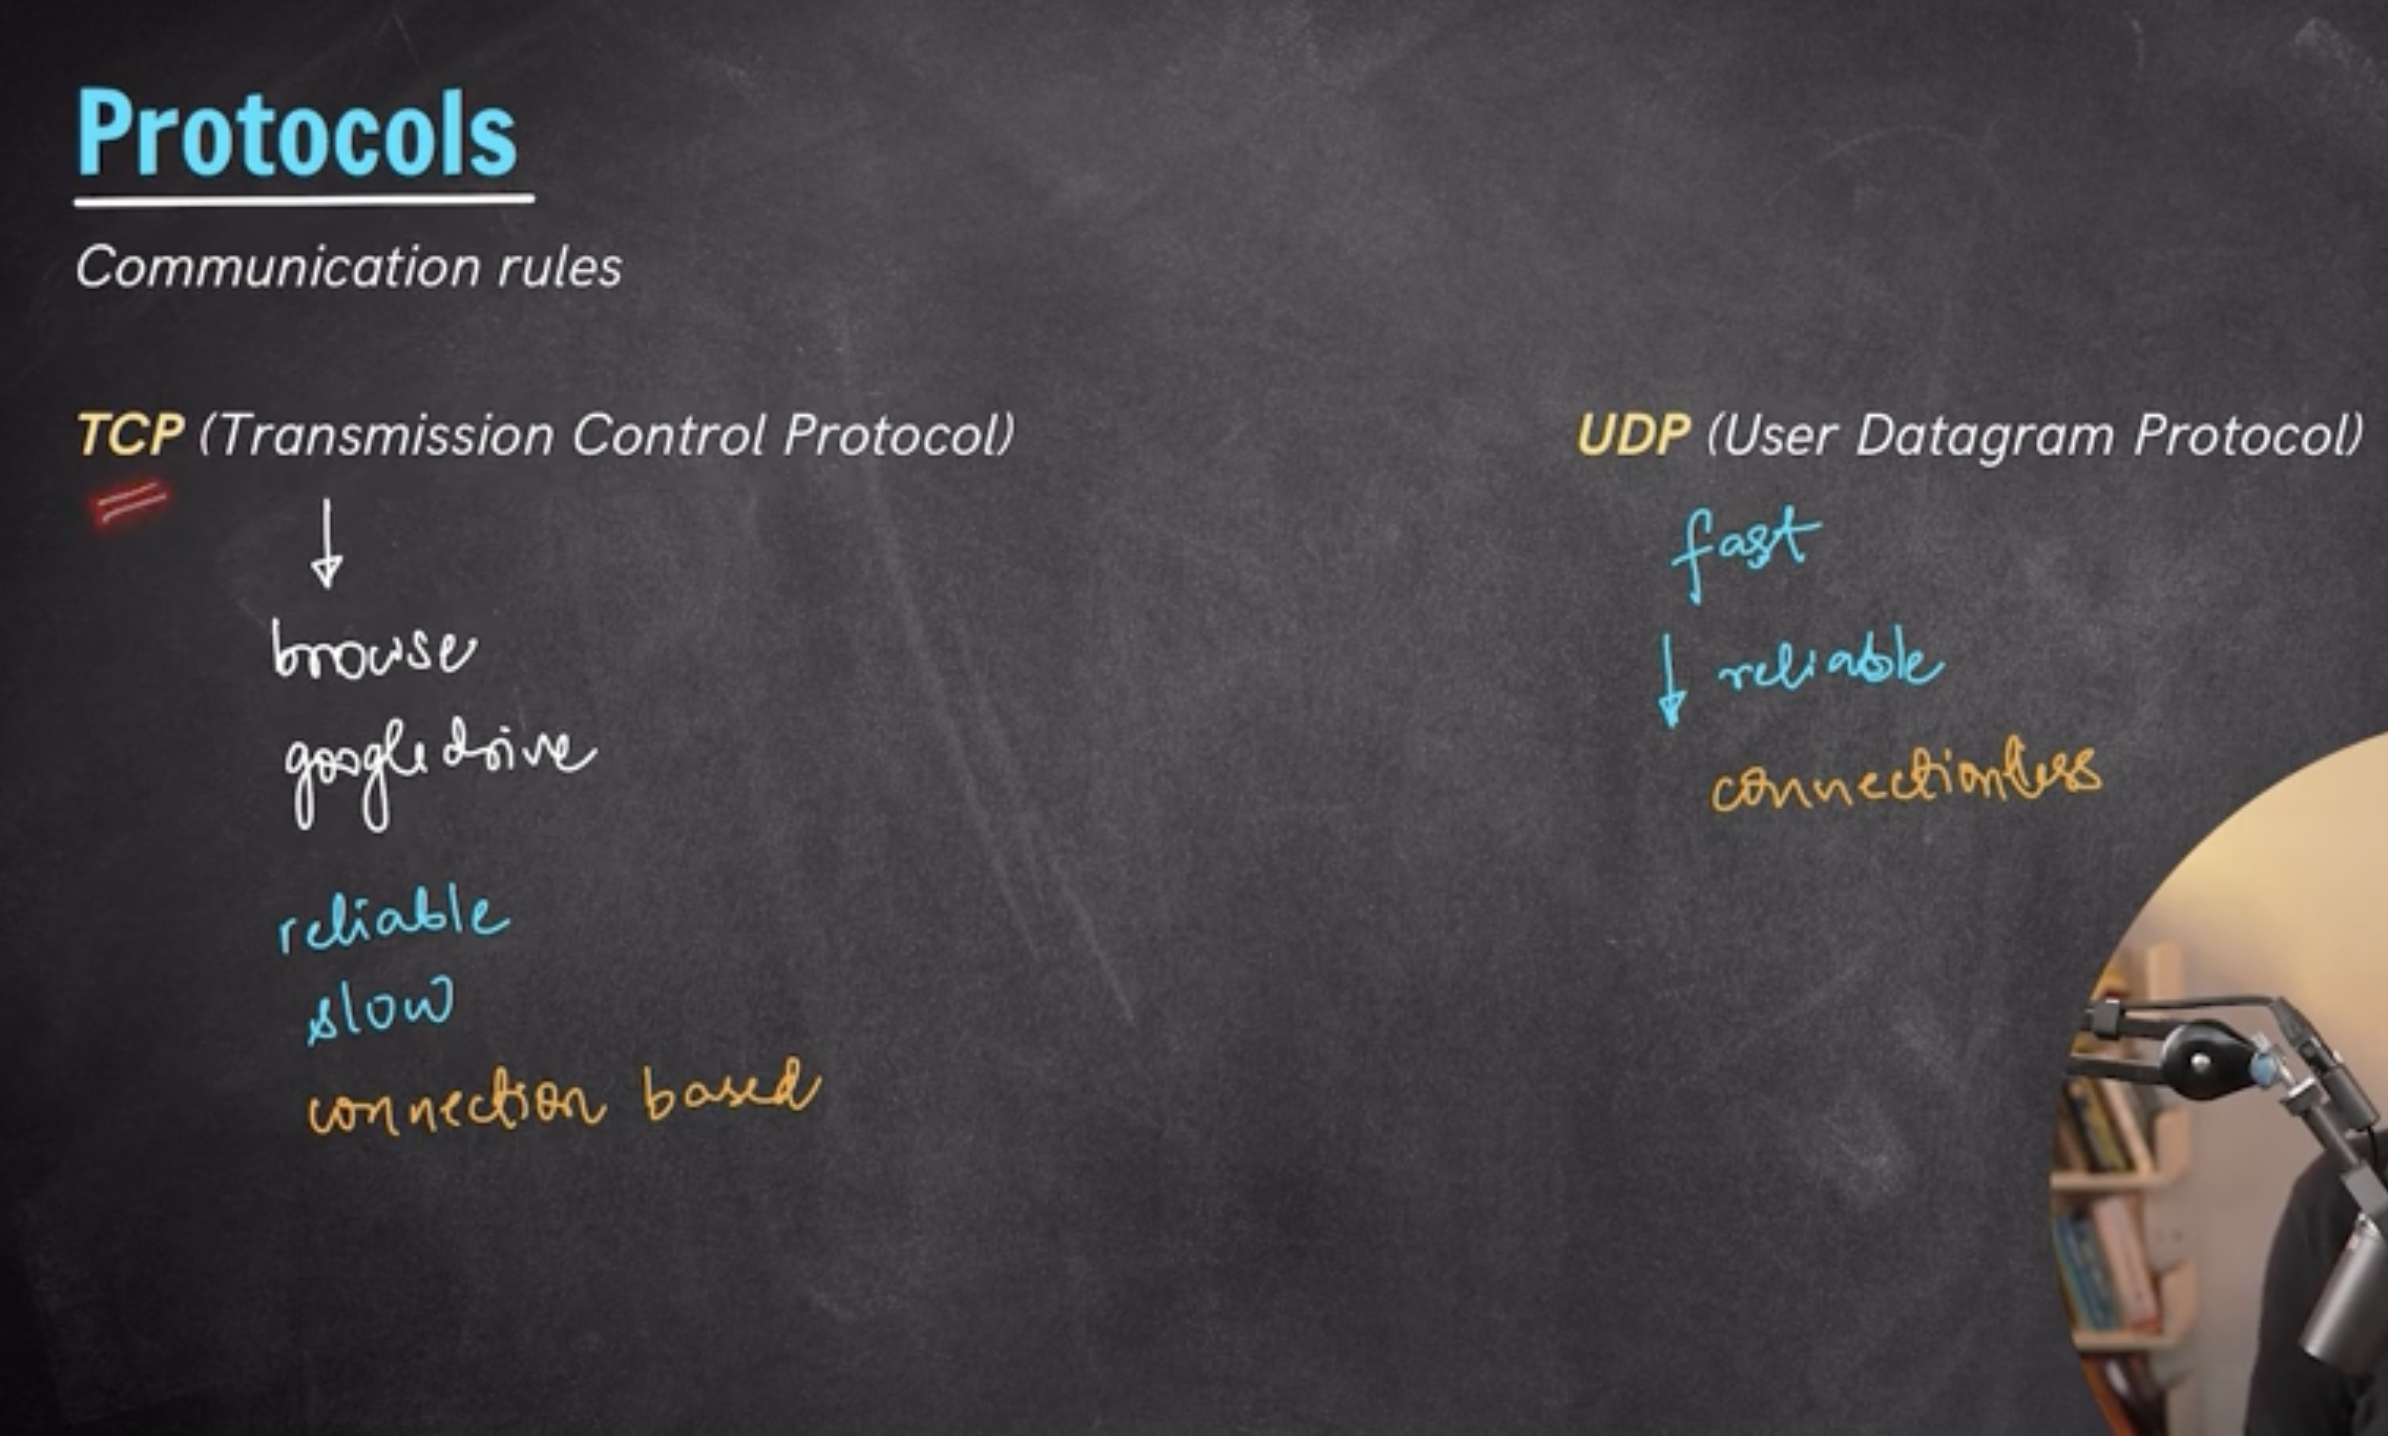 Protocols
Communication rules
TCP (Transmission Control Protocol)
↓
browse
google drive
reliable
slow
connection based
UDP (User Datagram Protocol)
fast
↓ reliable
connectionless